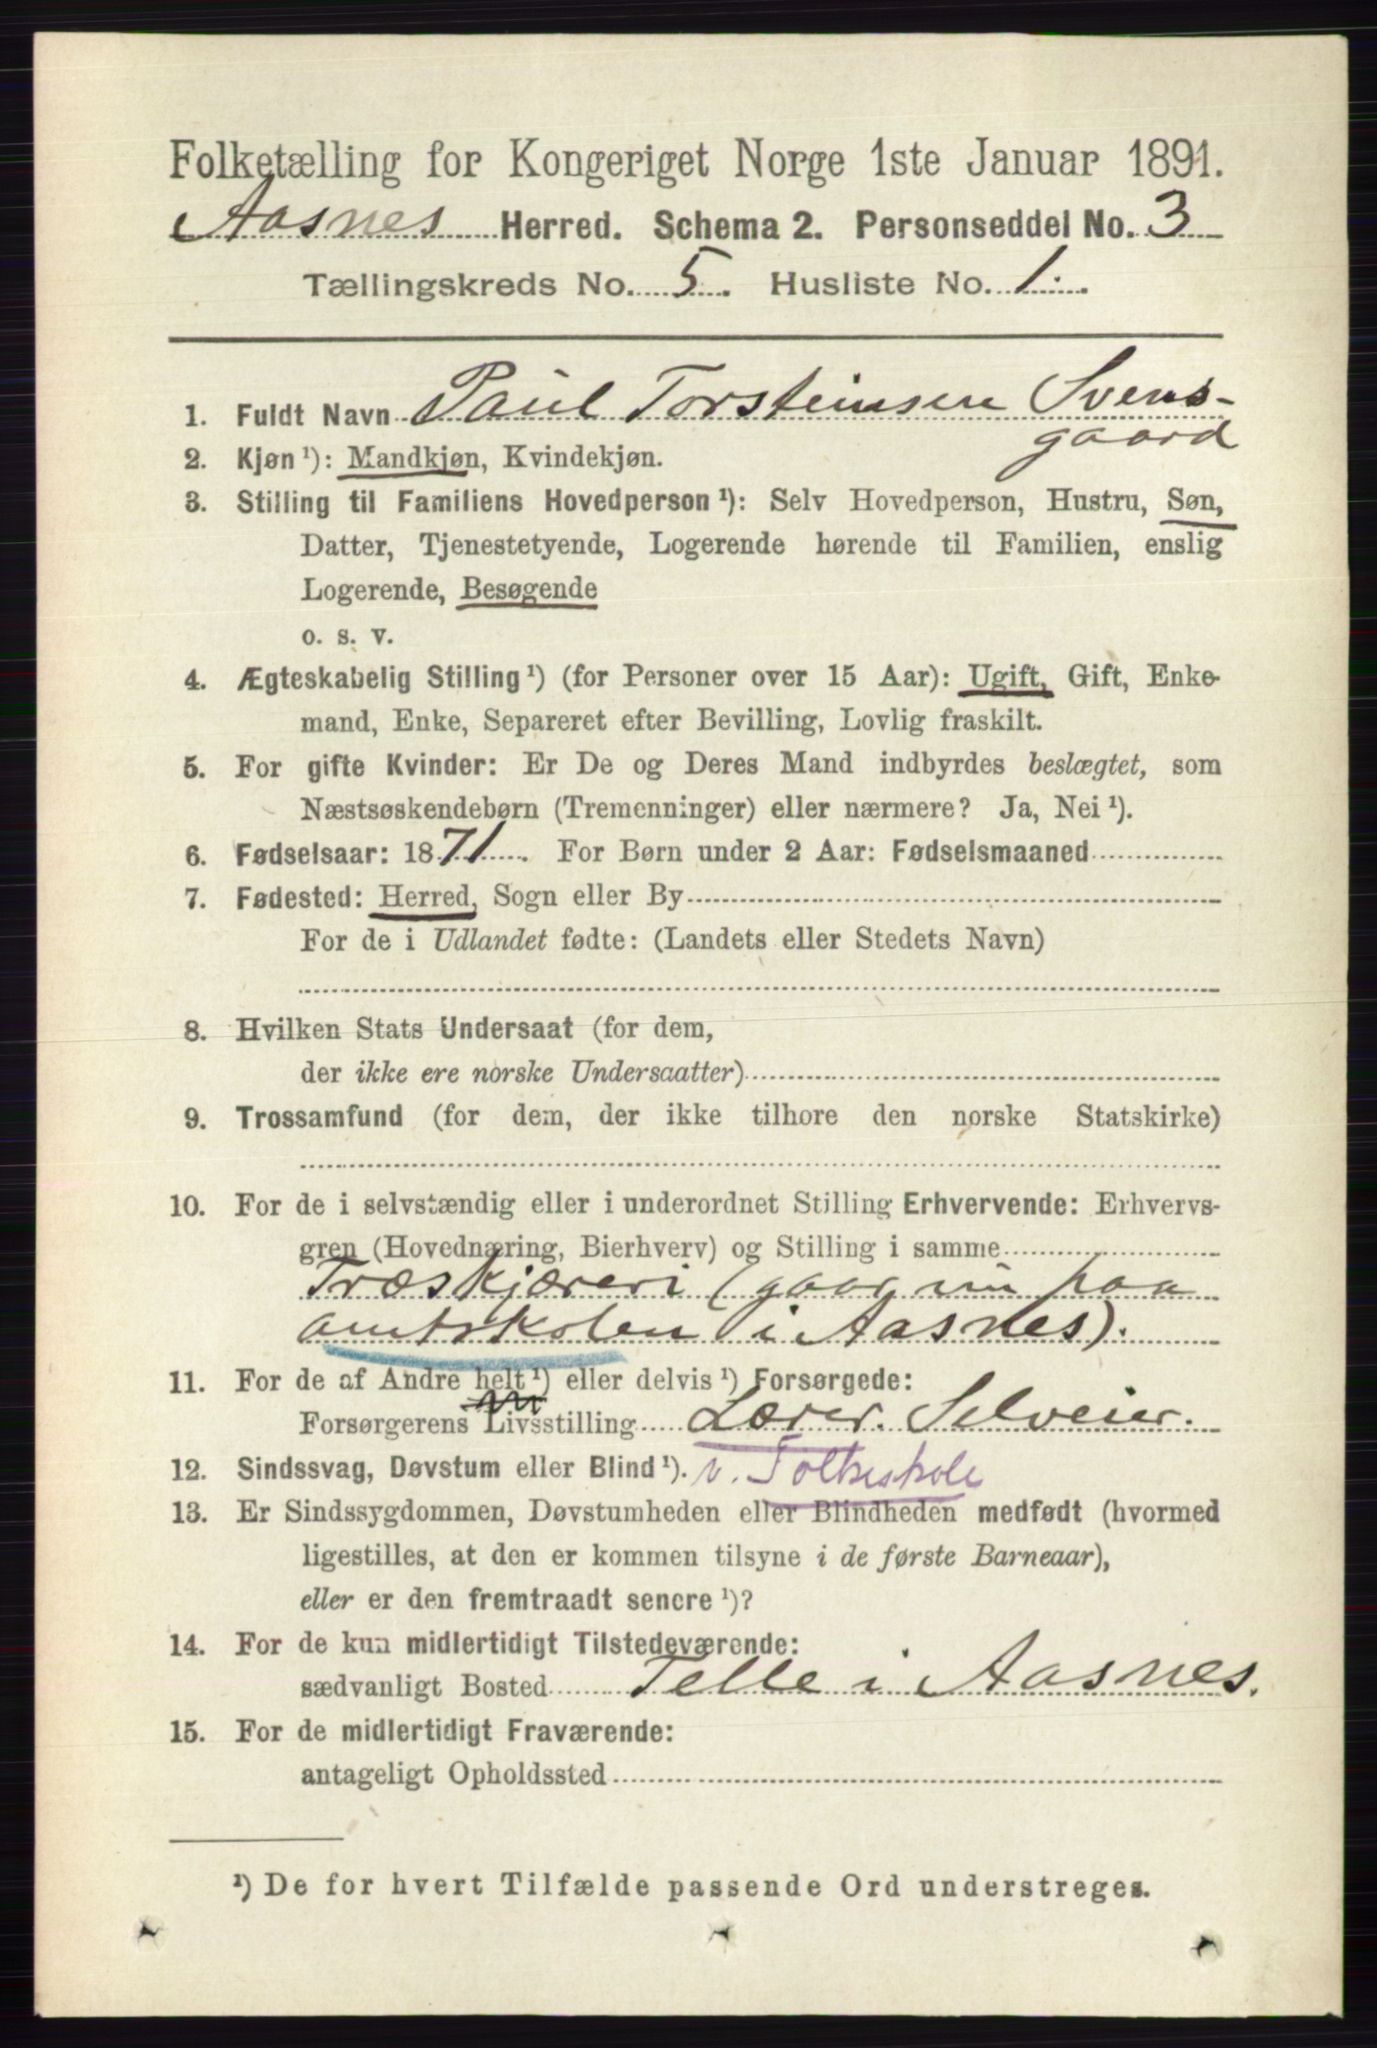 Folketælling for Kongeriget Norge 1ste Januar 1891.
Aasnes Herred. Schema 2. Personseddel No. 3
Tællingskreds No. 5. Husliste No. 1.
1. Fuldt Navn Paul Torsteinsen Svens-
gaard
2. Kjøn ¹): Mandkjøn, Kvindekjøn.
3. Stilling til Familiens Hovedperson ¹): Selv Hovedperson, Hustru, Søn,
Datter, Tjenestetyende, Logerende hørende til Familien, enslig
Logerende, Besøgende
o. s. v.
4. Ægteskabelig Stilling ¹) (for Personer over 15 Aar): Ugift, Gift, Enke-
mand, Enke, Separeret efter Bevilling, Lovlig fraskilt.
5. For gifte Kvinder: Er De og Deres Mand indbyrdes beslægtet, som
Næstsøskendebørn (Tremenninger) eller nærmere? Ja, Nei ¹).
6. Fødselsaar: 1871. For Børn under 2 Aar: Fødselsmaaned
7. Fødested: Herred, Sogn eller By
For de i Udlandet fødte: (Landets eller Stedets Navn)
8. Hvilken Stats Undersaat (for dem,
der ikke ere norske Undersaatter)
9. Trossamfund (for dem, der ikke tilhore den norske Statskirke)
10. For de i selvstændig eller i underordnet Stilling Erhvervende: Erhvervs-
gren (Hovednæring, Bierhverv) og Stilling i samme
Træskjæreri (gaar nu paa
amtskolen i Aasnes).
11. For de af Andre helt ¹) eller delvis ¹) Forsørgede:
Forsørgerens Livsstilling Lærer. Selveier.
12. Sindssvag, Døvstum eller Blind ¹). v. Folkeskole
13. Er Sindssygdommen, Døvstumheden eller Blindheden medfødt (hvormed
ligestilles, at den er kommen tilsyne i de første Barneaar),
eller er den fremtraadt senere ¹)?
14. For de kun midlertidigt Tilstedeværende:
sædvanligt Bosted Telle i Aasnes.
15. For de midlertidigt Fraværende:
antageligt Opholdssted
¹) De for hvert Tilfælde passende Ord understreges.